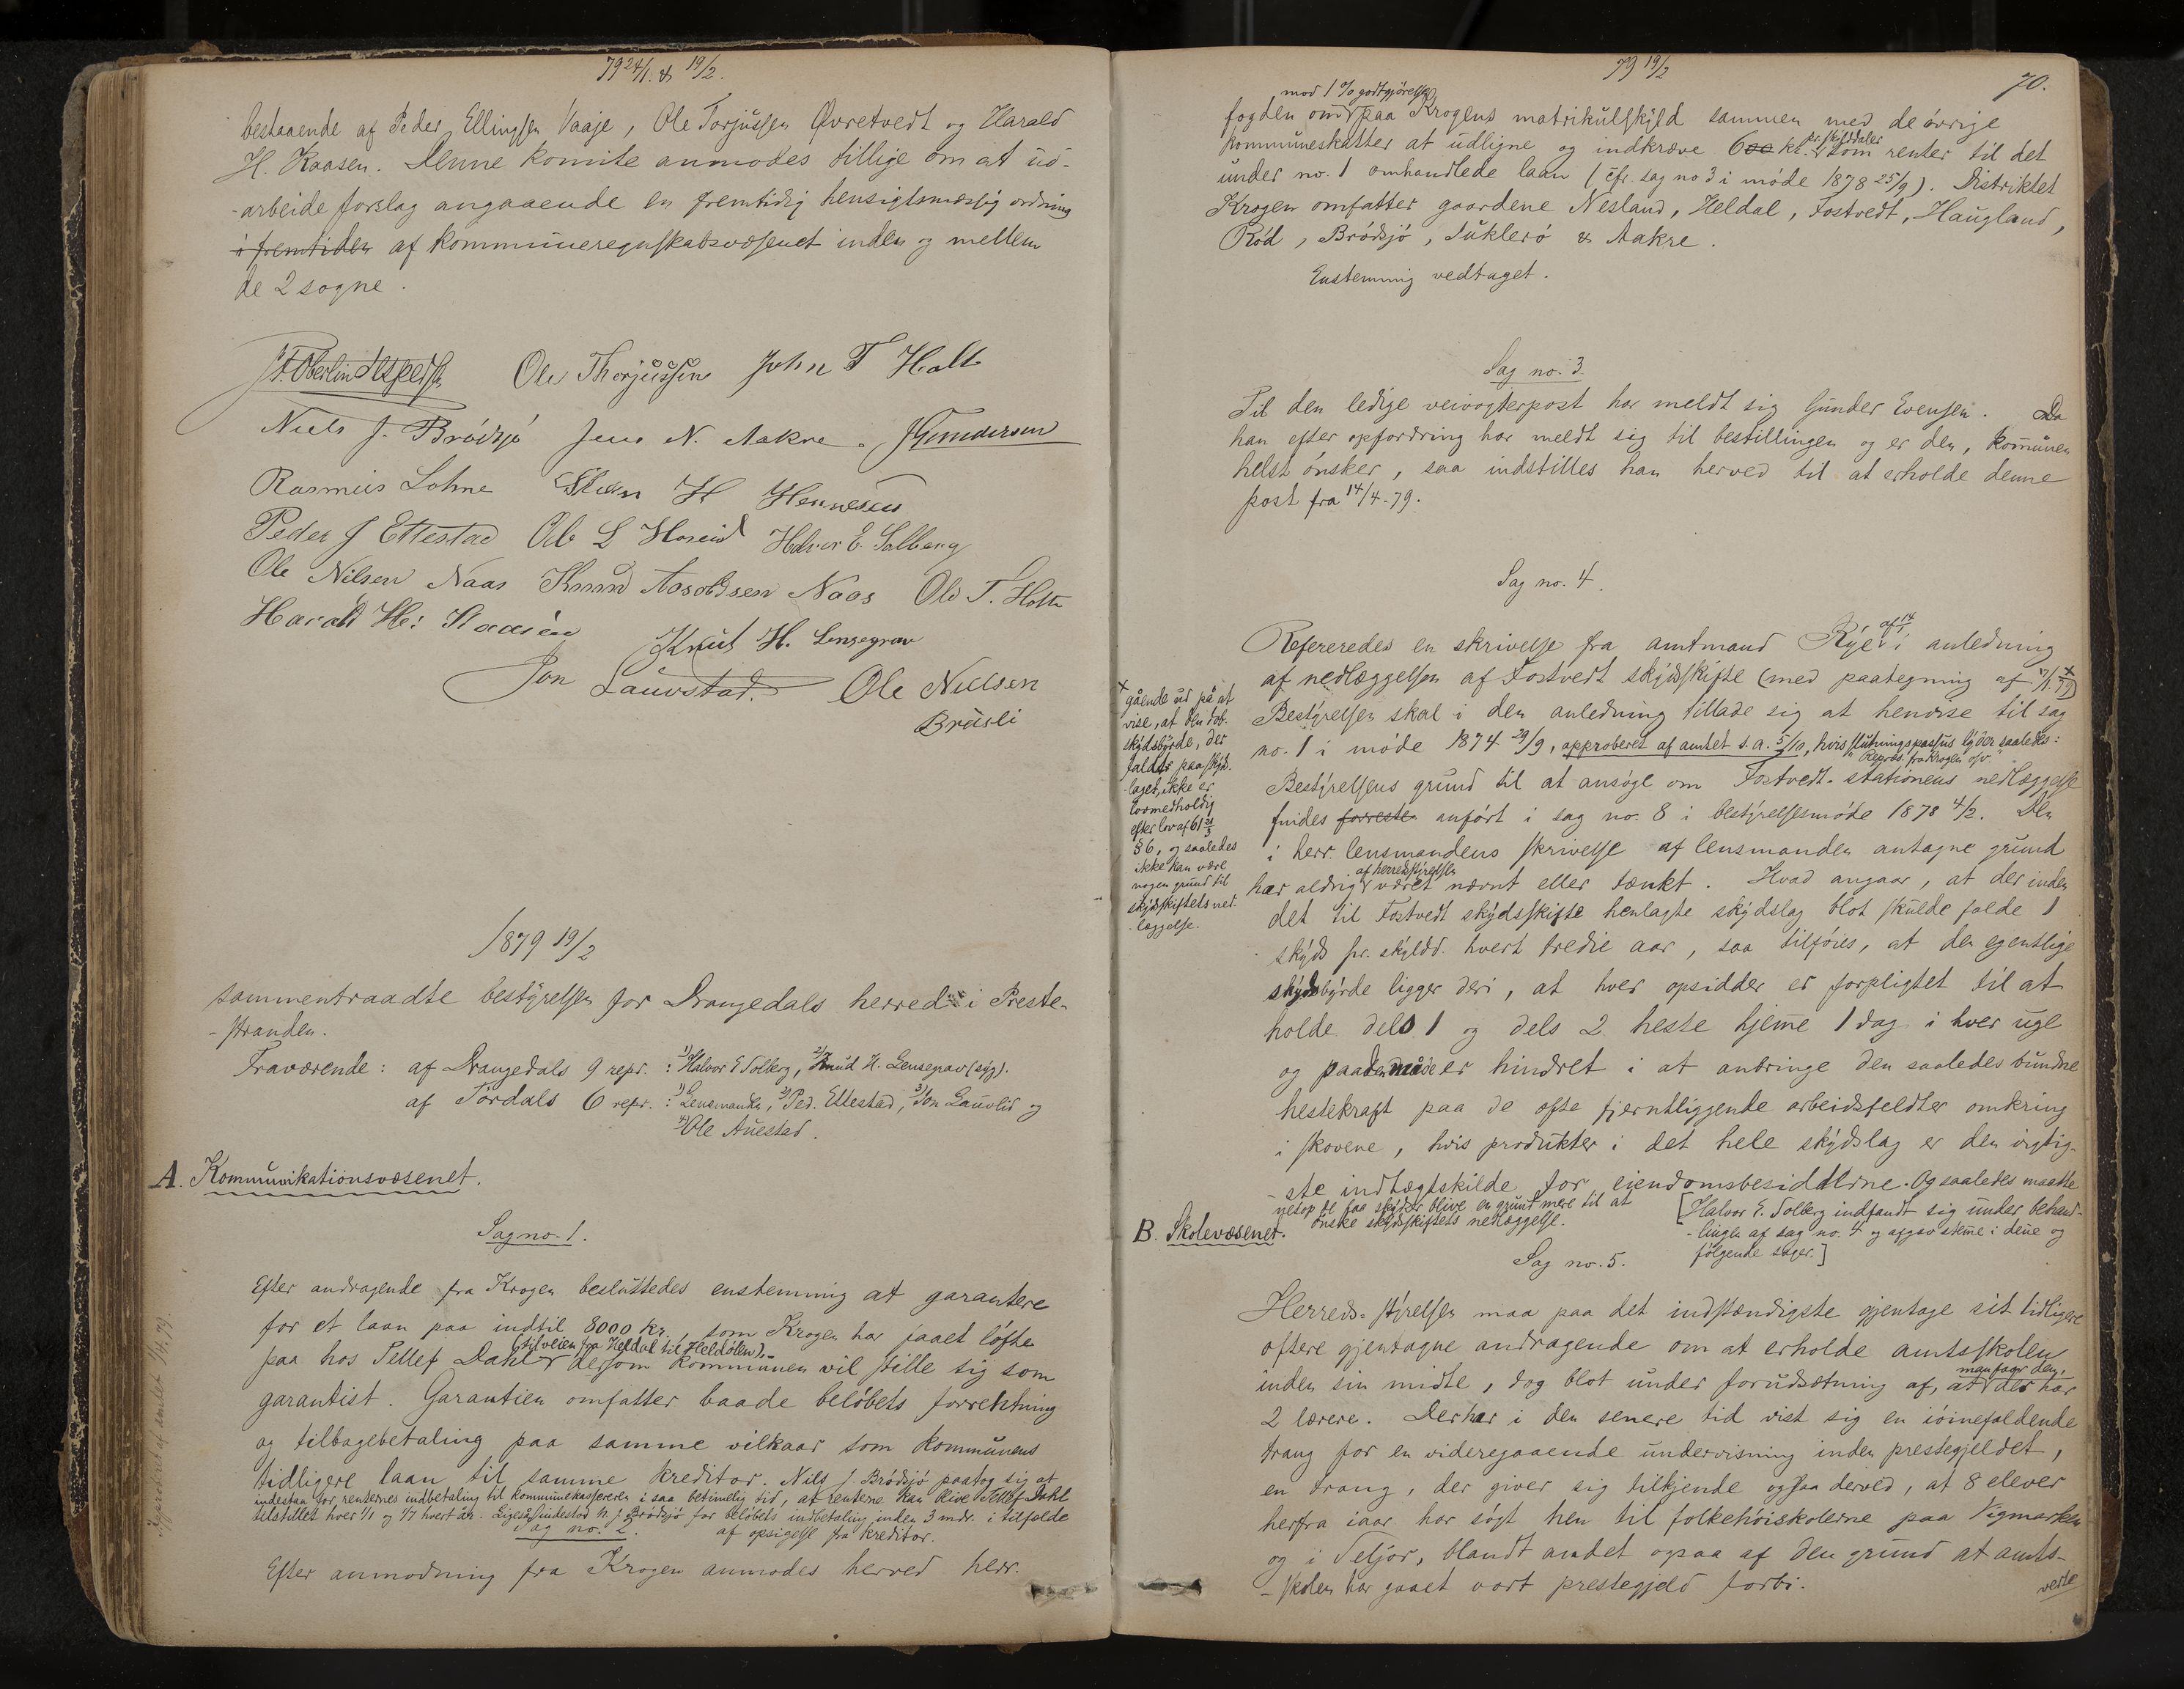 79 24/1. & 19/2.
bestaaende af Peder Ellingsen Vaaje, Ole Torjussen Øvretvedt og Harald
H. Kaasen. Denne komite anmodes tillige om at ud-
-arbeide forslag angaaende en fremtidig hensigtsmæssig ordning
i fremtiden af kommuneregnskabsvæsenet inden og mellem
de 2 sogne.
Ole Thorjussen John T Holte
Niels J. Brödsjö Jens N. Aakre. J Gundersen
Rasmus Lohne Sten H Hennseid
Peder J Ettestad Ole L Hoseid Halvor E. Solberg
Ole Nilsen Naas Knud Aasoldsen Naas Ole T. Holte
Harald H. Kaasen
Knut H. Lensegrav
Jon Lauvstad. Ole Nielsen
Bråsli
1879 19/2
sammentraadte bestyrelsen for Drangedals herred i Preste-
-stranden.
Fraværende: af Drangedals 9 repr.: 1) Halvor E Solberg, 2) Knud H. Lensegrav (syg).
af Tørdals 6 repr.: 1) Lensmanden, 2) Ped. Ettestad, 3) Jon Lauvlid og
4) Ole Auestad.
A. Kommunikationsvæsenet.
Sag no. 1.
Efter andragende fra Krogen besluttedes enstemmig at garantere
for et laan paa indtil 8000 kr., som Krogen har faaet löfte
(til veien fra Heldal til Heldölen),
paa hos Tellef Dahl dersom kommunen vil stille sig som
garantist. Garantien omfatter baade belöbets forrentning
og tilbagebetaling paa samme vilkaar som kommunens
tidligere laan til samme kreditor. Nils J. Brödsjö paatog sig at
indestaa for renternes indbetaling til kommunekassereren i saa betimelig tid, at renterne kan blive Tellef Dahl
tilstillet hver 1/1 og 1/7 hvert år. Ligesaa indestod N. J. Brödsjö for belöbets indbetaling inden 3 mdr. i tilfælde
af opsigelse fra kreditor.
Sag no. 2.
Efter anmodning fra Krogen anmodes herred herr.
Approberet af amtet 1/4 79.
79 19/2
70.
mod 1 % godtgjörelse
fogden om paa Krogens matrikulskyld sammen med de övrige
pr. skylddaler
kommuneskatter at udligne og indkræve 600 kr. som renter til det
under no. 1 omhandlede laan (cfr. sag no 3 i möde 1878 25/9). Distriktet
Krogen omfatter gaardene Nesland, Heldal, Fostvedt, Haugland,
Röd, Brödsjö, Suklerö & Aakre.
Enstemmig vedtaget.
Sag no. 3
Til den ledige veivogterpost har meldt sig Gunder Evensen. Da
han efter opfordring har meldt sig til bestillingen og er den, kommunen
helst önsker, saa indstilles han herved til at erholde denne
post fra 14/4-79.
Sag no. 4.
Refereredes en skrivelse fra amtmand Rye af 14/1 i anledning
af nedlæggelsen af Fostvedt skydsskifte (med paategning af 17/1. 79)
Bestyrelsen skal i den anledning tillade sig at henvise til sag
no. 1 i möde 1874 29/9, approberet af amtet s. a. 5/10, hvis slutningspassus lyder saaledes:
"Repræs. fra Krogen osv."
Bestyrelsens grund til at ansöge om Fostvedt-stationens nedlæggelse
findes forreste anfört i sag no. 8 i bestyrelsesmöde 1878 4/2. Den
i herr. lensmandens skrivelse af lensmanden antagne grund
af herredsstyrelsen
har aldrig været nævnt eller tænkt. Hvad angaar, at der inden
det til Fostvedt skydsskifte henlagte skydslag blot skulde falde 1
skyds pr. skyldd. hvert tredie aar, saa tilföies, at den egentlige
skydsbyrde ligger deri, at hver opsidder er forpligtet til at
holde dels 1 og dels 2 heste hjemme 1 dag i hver uge
og paa den måde er hindret i at anbringe den saaledes bundne
hestekraft paa de ofte fjerntliggende arbeidsfeldter omkring
i skovene, hvis produkter i det hele skydslag er den vigtig-
-ste indtægtskilde for eiendomsbesidderne. Og saaledes maatte
netop de faa skydser blive en grund mere til at
önske skydsskiftets nedlæggelse.
x
gående ud på at
vise, at den tob.
skydsbyrde, der
falder paa skyds-
-laget, ikke er
lovmedholdig
efter lov af 61 21/5
§ 6, og saaledes
ikke kan være
nogen grund til
skydsskiftets ned-
-læggelse.
[Halvor E. Solberg indfandt sig under behand-
-lingen af sag no. 4 og afgav stemme i denne og
følgende sager.]
B. Skolevæsenet.
Sag no. 5.
Herreds-styrelsen maa paa det indstændigste gjentage sit tidligere
oftere gjentagne andragende om at erholde amtsskolen
man fager den.
inden sin midte, dog blot under forudsætning af, at der har
2 lærere. Der har i den senere tid vist sig en iöinefaldende
trang for en videregaaende undervisning inden prestegjeldet,
en trang, der giver sig tilkjende ogsaa derved, at 8 elever
herfra iaar har sögt hen til folkehöiskolerne paa Vigmarken
og i Seljor, blandt andet ogsaa af den grund at amts-
-skolen har gaaet vort prestegjeld forbi.